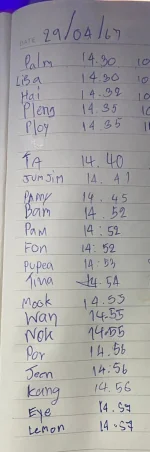 DATE 29/04/67
Palm 14.30 10
Lisa 14.30 10
Hai 14.32 10
Pleng 14.35 10
Ploy 14.35 11
TA 14.40
JUMJIM 14.41
14.45
Bam 14.52
PAM 14:52
FON 14:52
Pupea 14:53
Tina 14.54
Mook 14.55
Wan 14.55
NOK 14.55
Por 14.56
Jeen 14.56
kang 14.56
Eye 14.57
Lemon 14.57